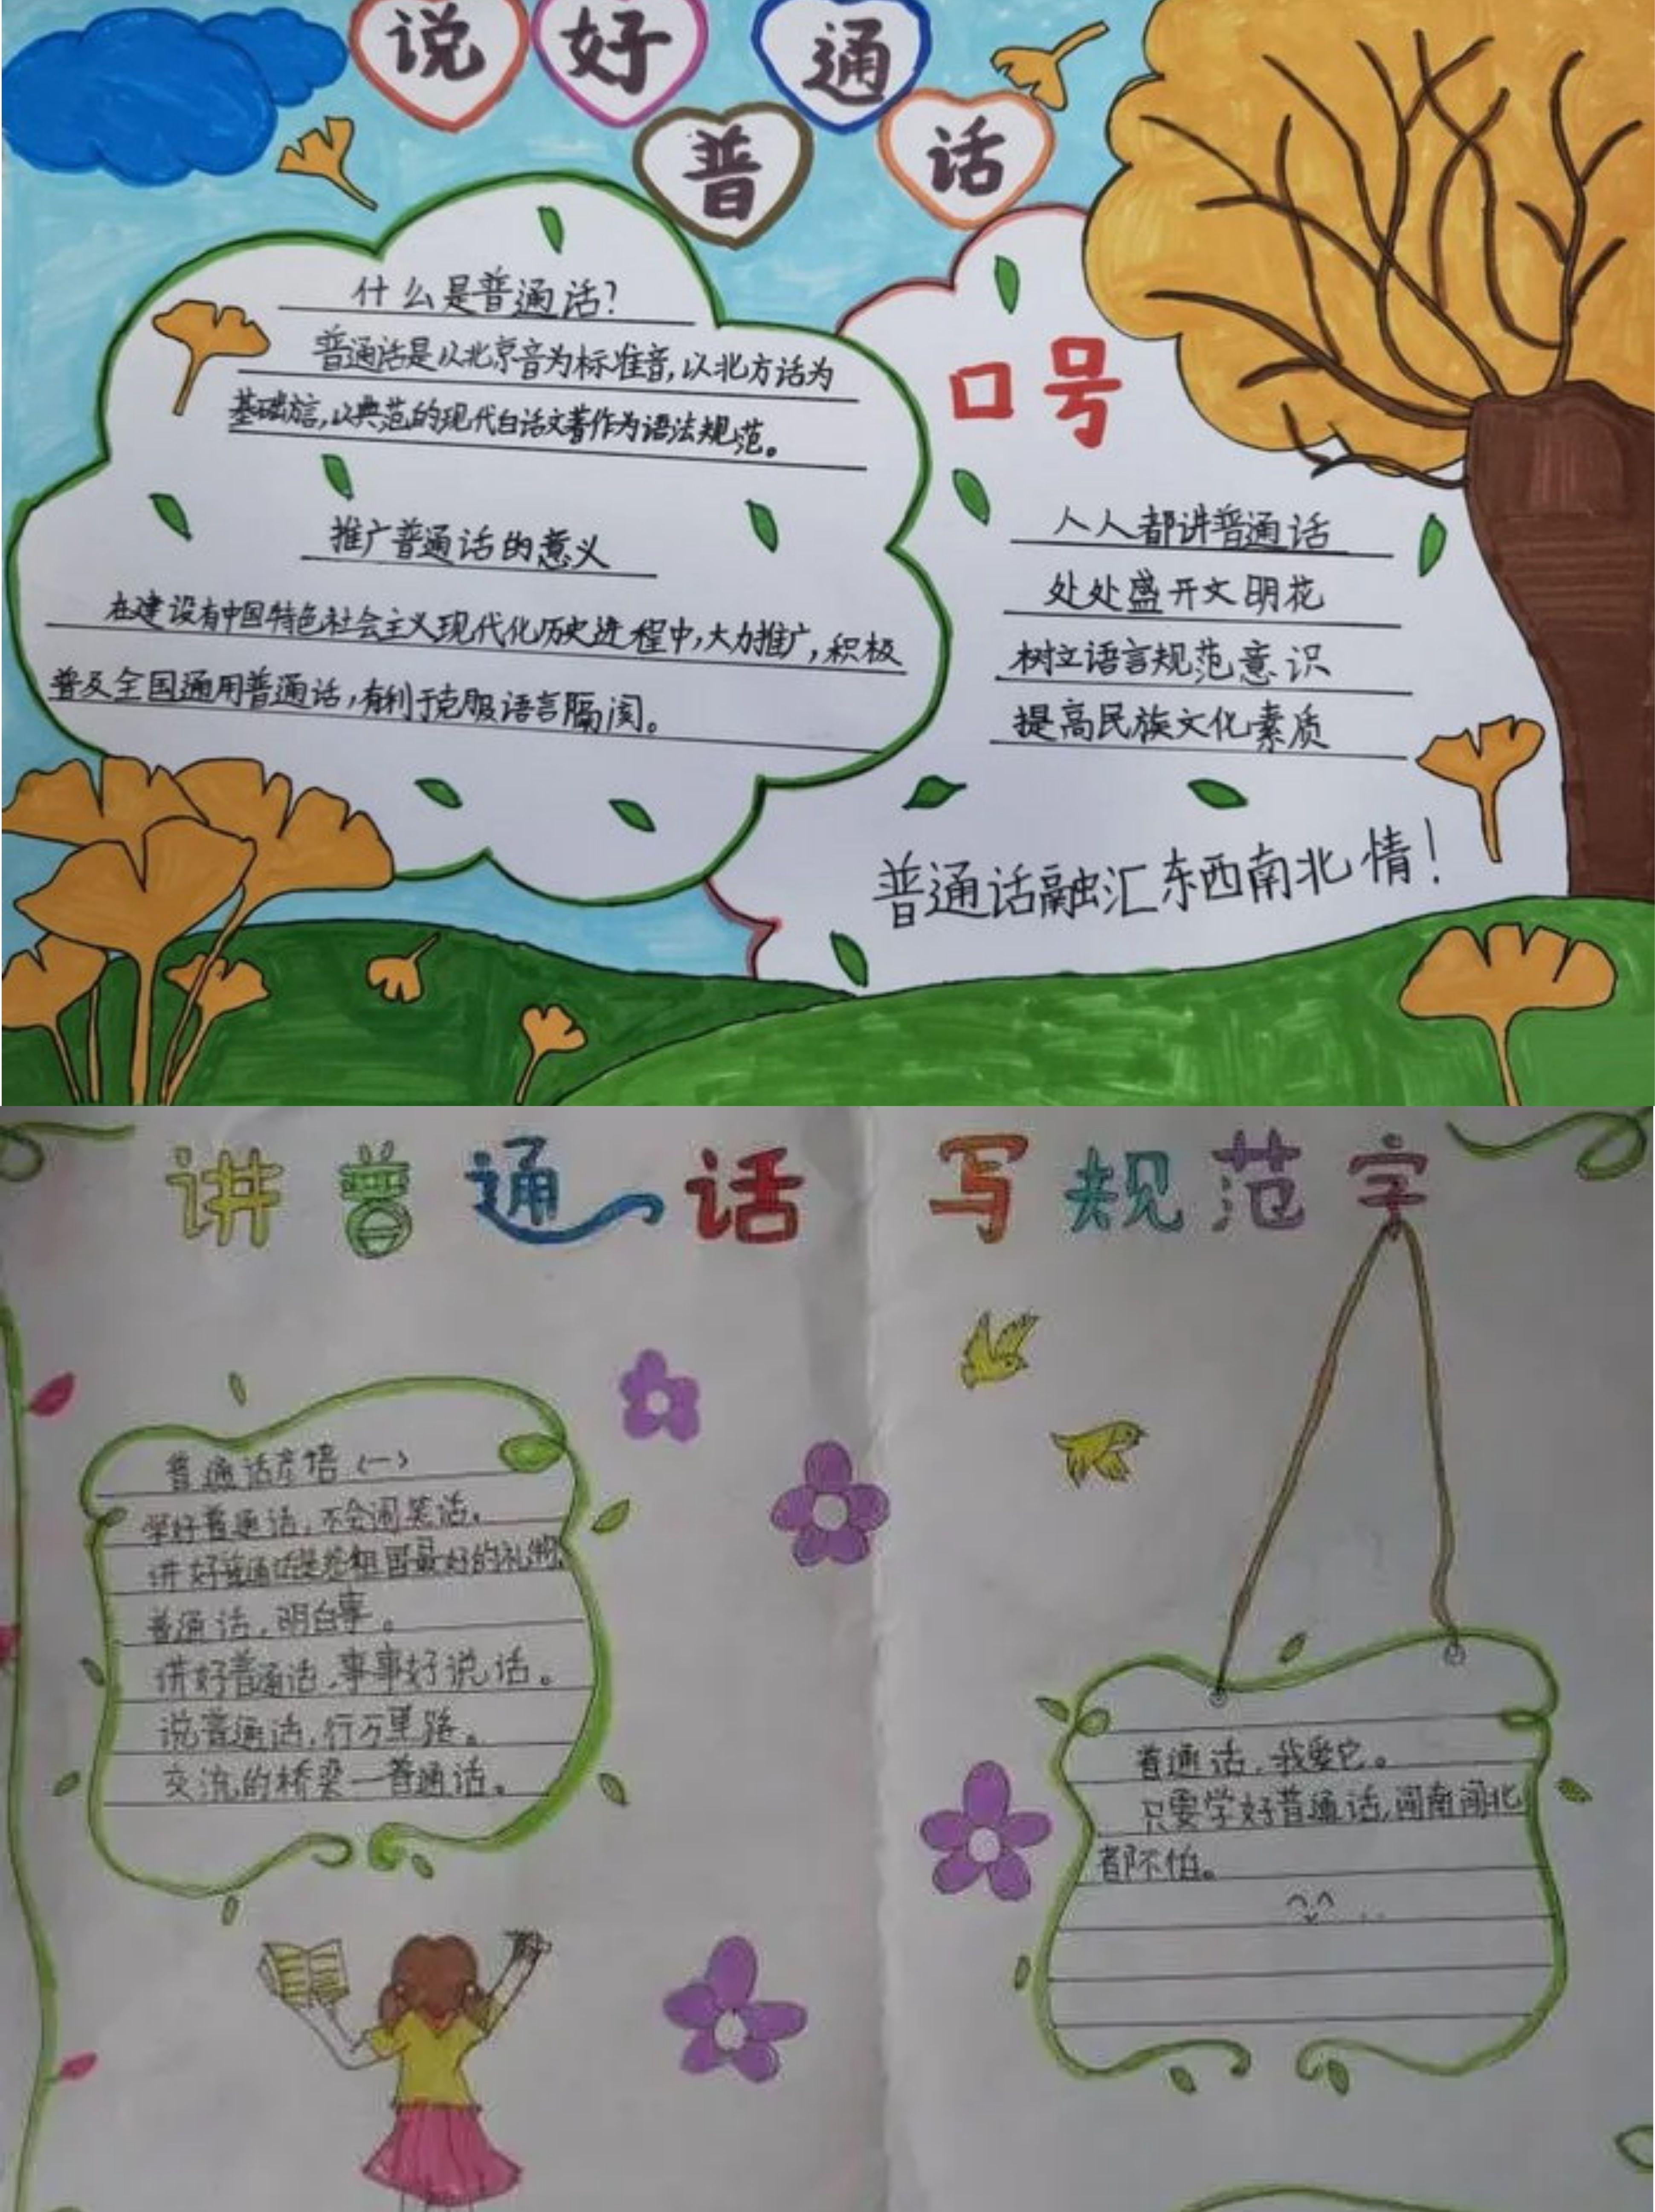 说好普通话
什么是普通话?
普通话是以北京音为标准音,以北方话为
基础方言,以典范的现代白话文著作为语法规范。
推广普通话的意义
在建设有中国特色社会主义现代化历史进程中,大力推广,积极
普及全国通用普通话,有利于克服语言隔阂。
口号
人人都讲普通话
处处盛开文明花
树立语言规范意识
提高民族文化素质
普通话融汇东西南北情!
讲普通话 写规范字
普通话(一)
学好普通话,不会闹笑话。
讲好普通话是给祖国最好的礼物
普通话,明白事。
讲好普通话,事事好说话。
说普通话,行万里路。
交流的桥梁一普通话。
普通话,我爱它。
只要学好普通话,闯南闯北
都不怕。